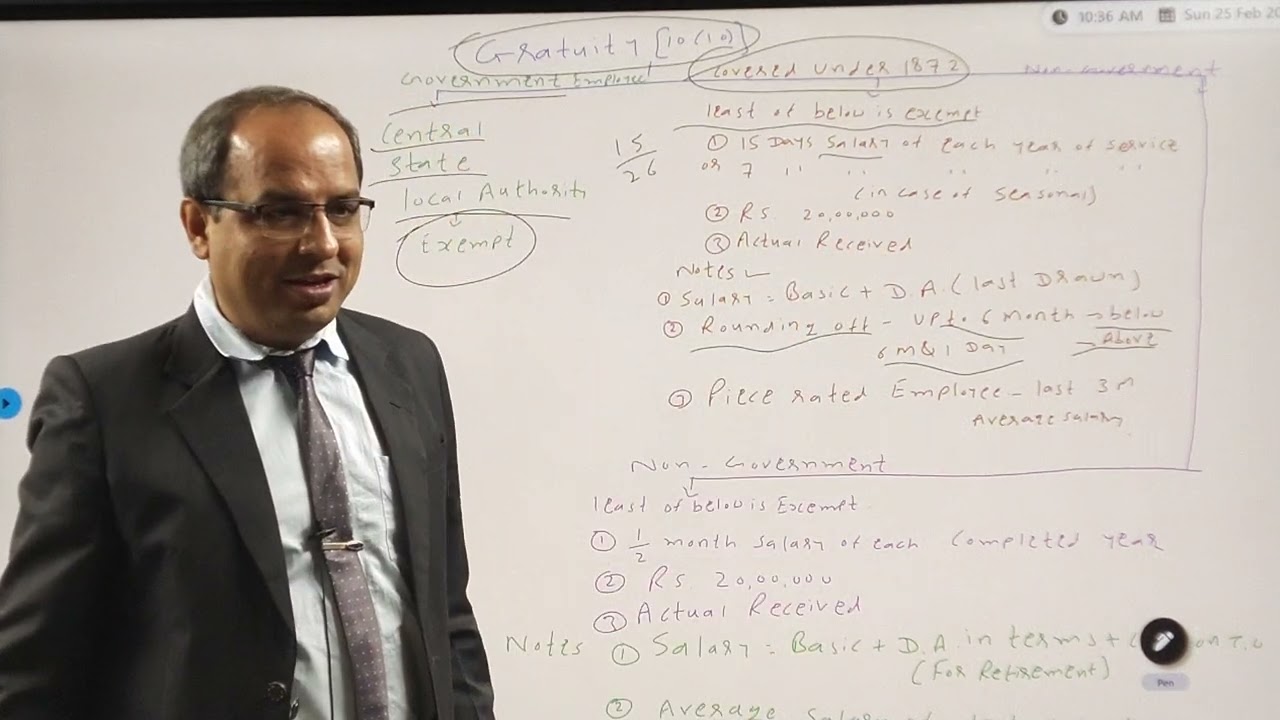 10:36 AM Sun 25 Feb 20
Gratuity [10(10)]
Government Employee
Covered under 1872
Non-Government
Central
State
local Authority
Exempt
least of below is exempt
15/26
① 15 Days salary of each year of service
or 7 ,, ,, ,, ,, ,,
(in case of seasonal)
② Rs. 20,00,000
③ Actual Received
Notes
① Salary = Basic + D.A. (last Drawn)
② Rounding off - upto 6 month → below
6 m & 1 Day → Above
③ Piece rated Employee - last 3 m
Average salary
Non-Government
least of below is Exempt
① 1/2 month salary of each Completed year
② Rs. 20,00,000
③ Actual Received
Notes ① Salary = Basic + D.A. in terms + on T.O
(For Retirement)
Pen
② Average salary of